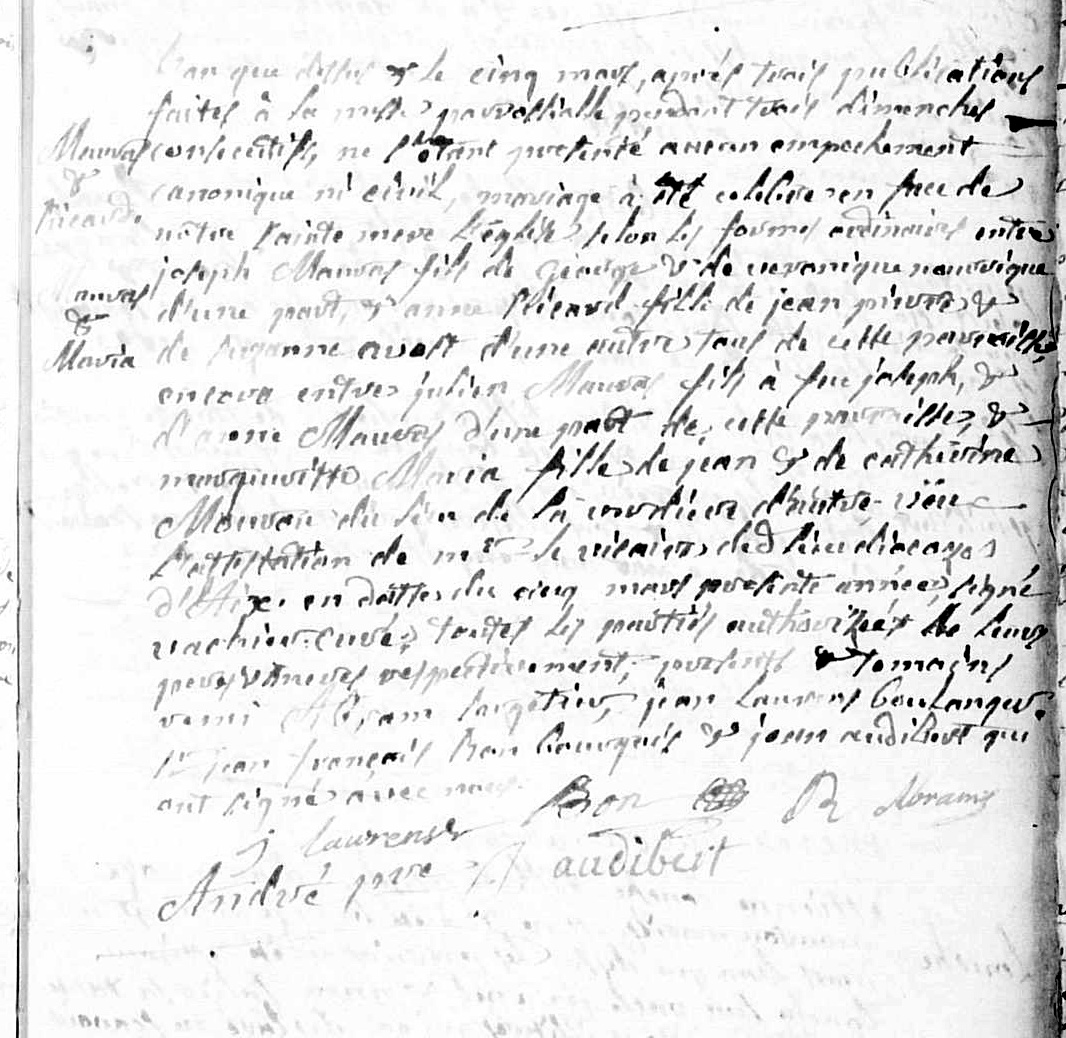 L'an que dessus & le cinq mars, après trois publications
faites à la messe parroissialle pendant trois dimanches
Mauras consecutifs, ne s'etant presenté aucun empechement
&
canonique ni civil, mariage à été celebré en face de
Ricarde
notre sainte mere l'église selon les formes ordinaires entre
joseph Mauras fils de George & de veronique
Mauras
d'une part, & anne Ricard fille de jean pierre &
&
de suzanne d'une autre tous de cette parroisse,
Maria
encore entre julien Mauras fils à feu joseph, &
d'anne Mauras d'une part de cette parroisse, &
marguerite Maria fille de jean & de catherine
du lieu de la d'autre veu
l'attestation de mre le vicaire dud lieu diocese
d'Aix en datte du cinq mars presente année, signé
curé, toutes les parties authorisées de leurs
peres & meres respectivement, presents & temoins
remi Abram sargetier, jean Laurens boulanger,
sr jean françois Bon bourgeois & jean audibert qui
ont signé avec nous.
Bon R Abram
j Laurens
audibert
André pre